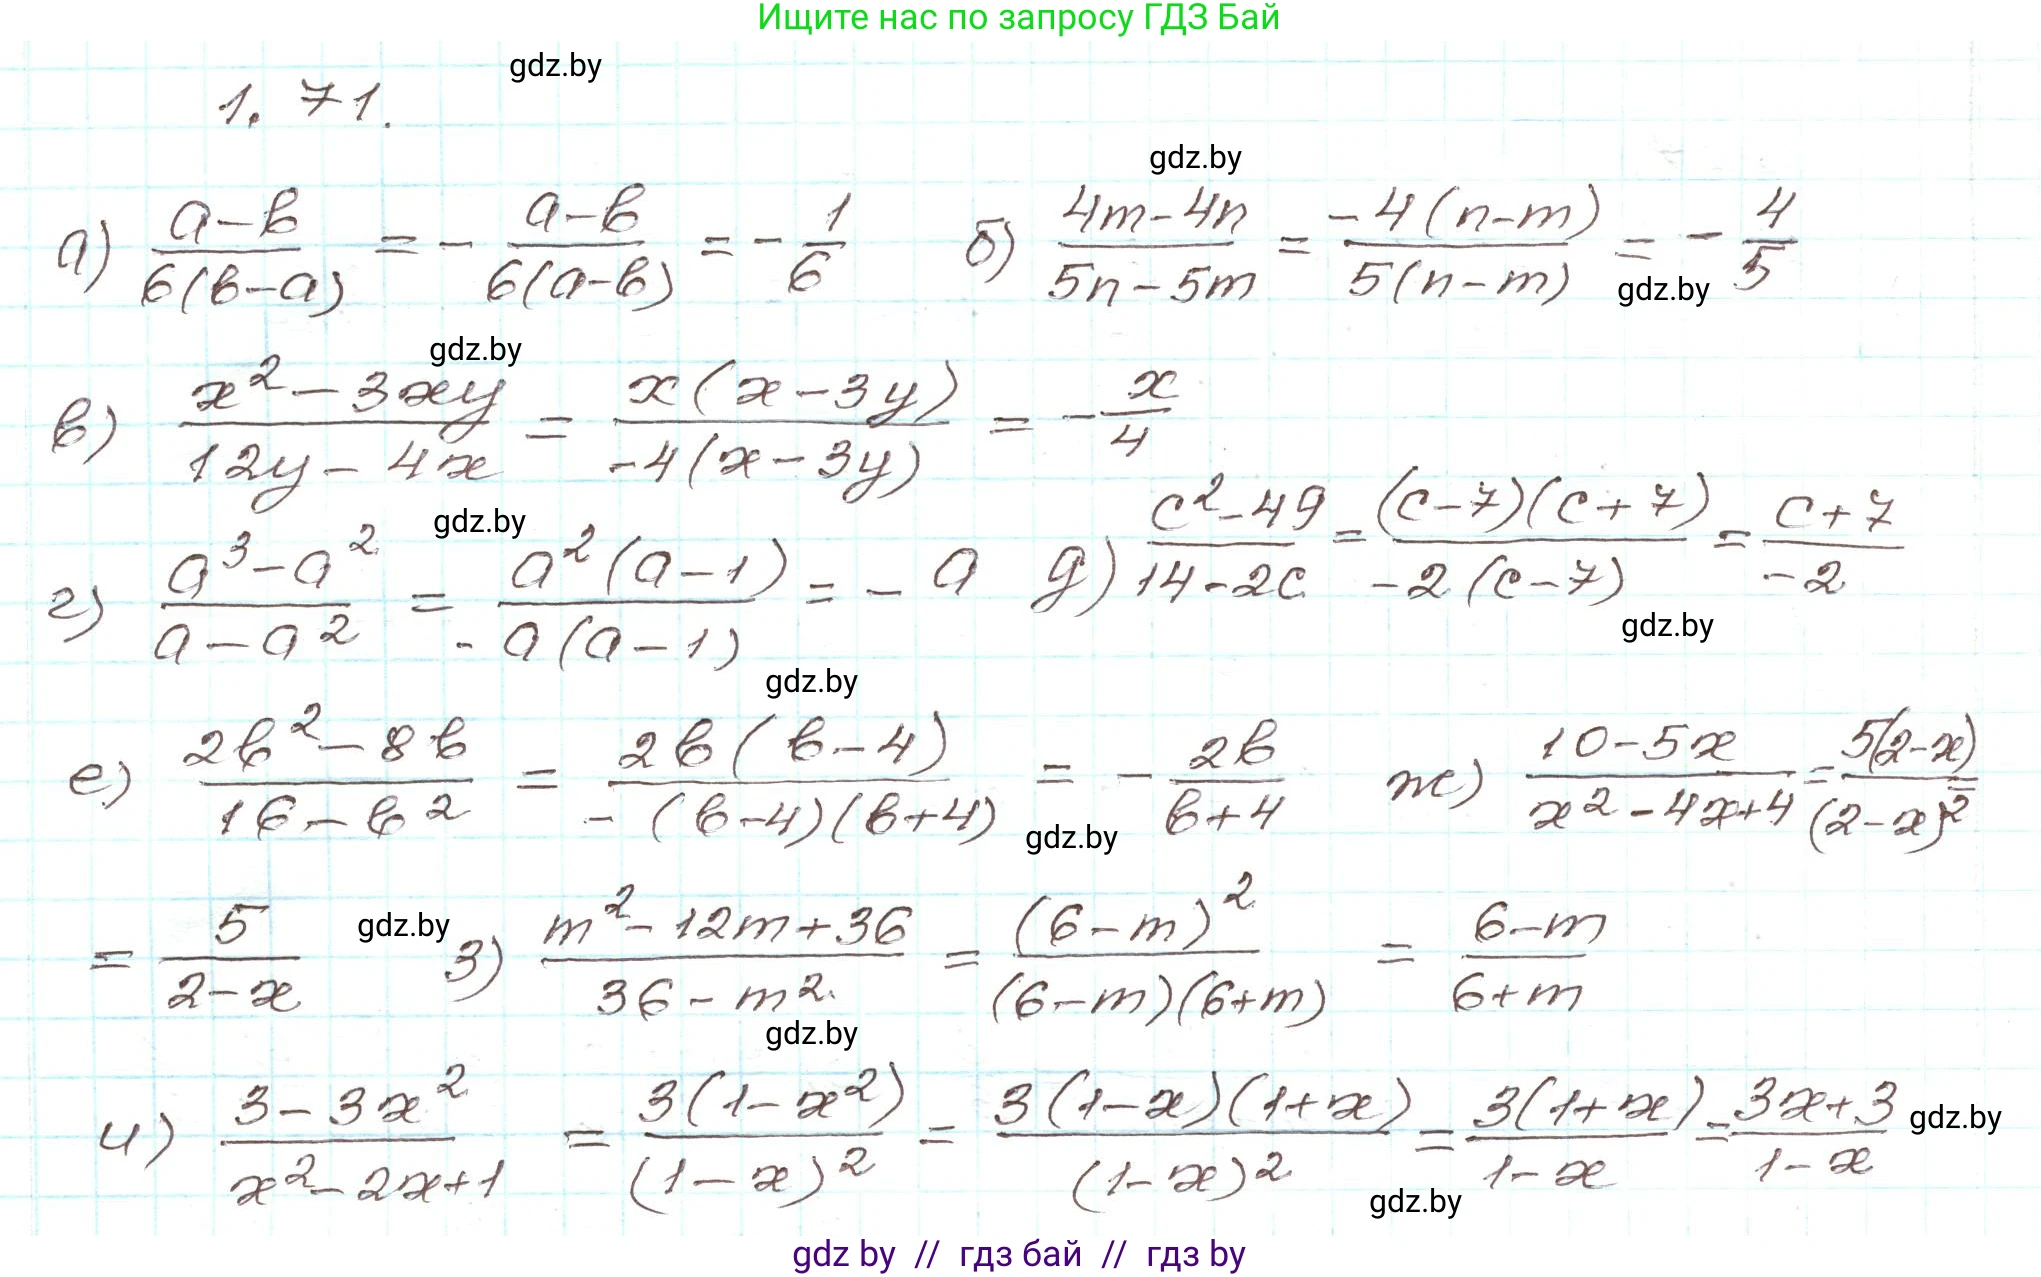 Ищите нас по запросу ГДЗ Бай
gdz.by
1.71.
gdz.by
а) \frac{a-b}{6(b-a)} = -\frac{a-b}{6(a-b)} = -\frac{1}{6} б) \frac{4m-4n}{5n-5m} = \frac{-4(n-m)}{5(n-m)} = -\frac{4}{5}
gdz.by
gdz.by
в) \frac{x^2-3xy}{12y-4x} = \frac{x(x-3y)}{-4(x-3y)} = -\frac{x}{4}
gdz.by
г) \frac{a^3-a^2}{a-a^2} = \frac{a^2(a-1)}{-a(a-1)} = -a д) \frac{c^2-49}{14-2c} = \frac{(c-7)(c+7)}{-2(c-7)} = \frac{c+7}{-2}
gdz.by
gdz.by
е) \frac{2b^2-8b}{16-b^2} = \frac{2b(b-4)}{-(b-4)(b+4)} = -\frac{2b}{b+4} ж) \frac{10-5x}{x^2-4x+4} = \frac{5(2-x)}{(2-x)^2} =
gdz.by
= \frac{5}{2-x} gdz.by з) \frac{m^2-12m+36}{36-m^2} = \frac{(6-m)^2}{(6-m)(6+m)} = \frac{6-m}{6+m}
gdz.by
и) \frac{3-3x^2}{x^2-2x+1} = \frac{3(1-x^2)}{(1-x)^2} = \frac{3(1-x)(1+x)}{(1-x)^2} = \frac{3(1+x)}{1-x} = \frac{3x+3}{1-x} gdz.by
gdz.by
gdz by // гдз бай // гдз by